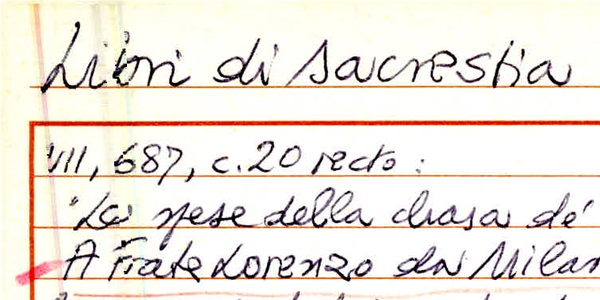 Libri di Sacrestia
VII, 687, c. 20 recto:
"Le spese della chasa de'
A Frate Lorenzo da Milan